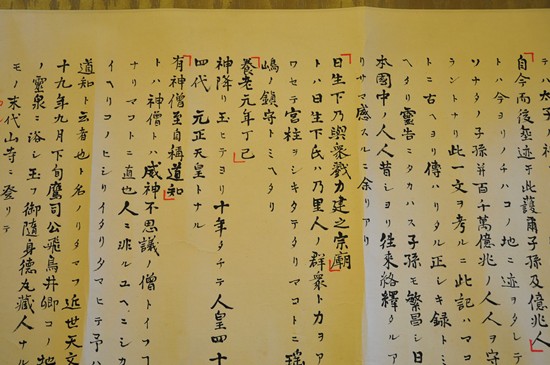 テハ太子ノ神
自今而後垂迹于此護爾子孫及億兆人
トハ今ヨリノチハコノ地ニ迹ヲタレテ
ソナタノ子孫并百千萬億兆ノ人人ヲ守
ラントナリ此一文ヲ考ルニ此記ハマコ
トニ古ヘヨリ傳ハリタル正シキ録トミ
ヘタリ靈告ニタカハス子孫モ繁昌シ日
本國中ノ人人昔シヨリ往来絡繹タルア
リサマ感スルニ余リアリ
日生下乃與衆戮力建之宗廟
トハ日生下氏ハ乃里人ノ群衆トカヲア
ワセテ宮柱ヲシキタテタリマコトニ瑶
嶋ノ鎮守トミヘタリ
養老元年丁巳
神降リ玉ヒテヨリ十年タチテ人皇四十
四代 元正天皇トナル
有神僧至自稱道知
トハ神僧ハ威神不思議ノ僧トイフコ
ナリマコトニ直也人ニ非ルユヘニシカ
イヘリコノヒシリイタリタマヒテ予ハ
道知ト云者也ト名ノリタマフ近世天文
十九年九月下旬鷹司公飛鳥井卿コノ地
ノ靈泉ニ浴シ玉フ御隨身德丸藏人ナル
モノ末代山寺ニ登リテ